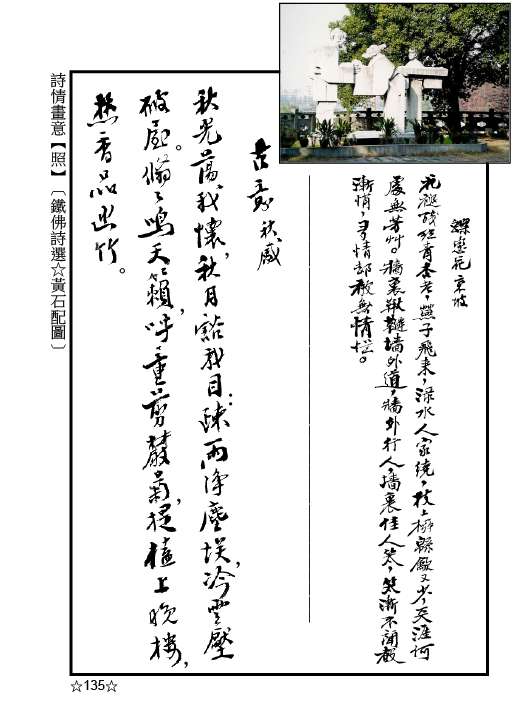 蝶戀花 東坡
花褪殘紅青杏老,燕子飛來,淥水人家繞,枝上柳緜又少,天涯何
處無芳艸。墻裏鞦韆墻外道,墻外行人,墻裏佳人笑,笑漸不聞聲
漸悄,多情却被無情惱。
古意 秋感
秋光蕩我懷,秋月豁我目;疎雨淨塵埃,冷雲壓
破屋。翛翛鳴天籟,呼童剪叢菊,提榼上晚樓,
香品幽竹。
詩情畫意【照】〔鐵佛詩選☆黃石配圖〕
☆135☆